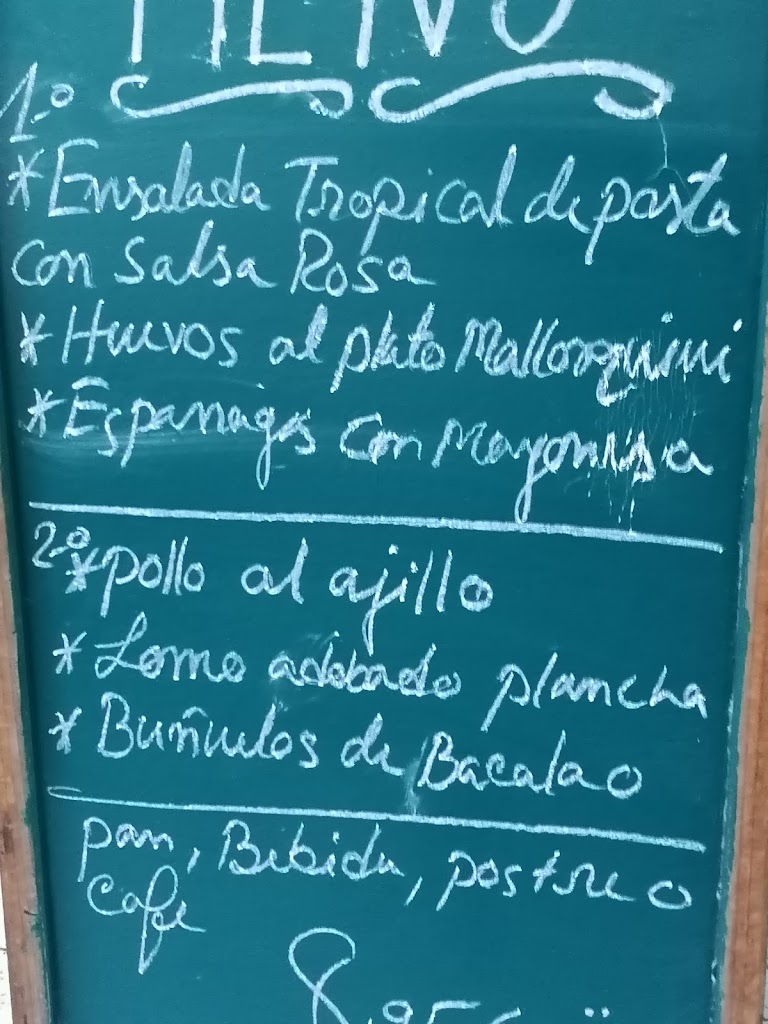 MENÚ
1.º
*Ensalada Tropical de pasta
con salsa Rosa
*Huevos al plato Mallorquini
*Esparragos con Mayonesa
2.º *pollo al ajillo
*Lomo adobado plancha
*Buñuelos de Bacalao
pan, Bebida, postre o
Cafe
8,95€